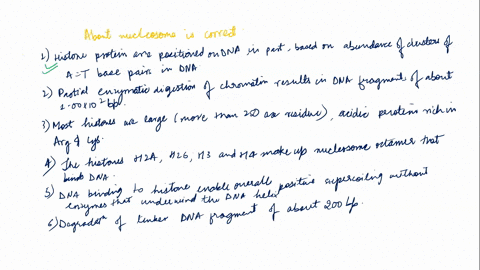 About nucleosome is correct
1) Histone protein are positioned on DNA in part, based on abundance of clusters of
A=T base pair in DNA
2) Partial enzymatic digestion of chromatin results in DNA fragment of about
2.00x10^2 bp.
3) Most histones are large (more than 250 aa residue), acidic protein rich in
Arg & Lys.
4) The histones H2A, H2B, H3 and H4 make up nucleosome octamer that
binds DNA.
5) DNA binding to histone enable overall positive supercoiling without
enzymes that underwind the DNA helix
6) Degradatn of linker DNA fragment of about 200 bp.